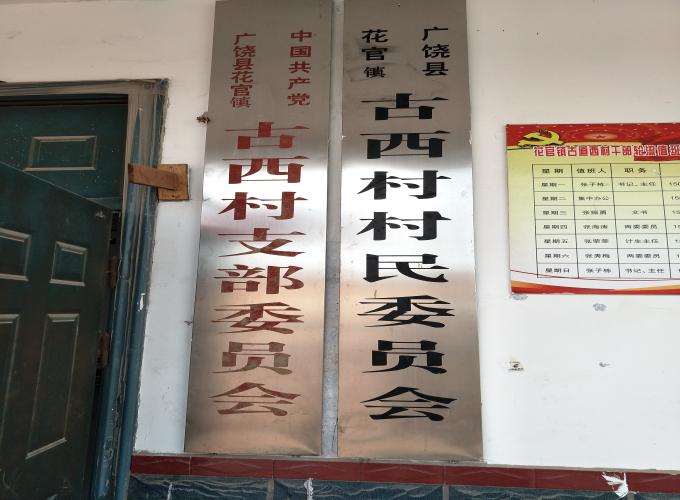 中国共产党
广饶县花官镇
古西村支部委员会
广饶县
花官镇
古西村村民委员会
花官镇古道西村干部轮流值班
星期 值班人 职务
星期一 张子栋 书记、主任 150
星期二 集中办公 15
星期三 张丽勇 文书 15
星期四 张海涛 两委委员 150
星期五 张荣菲 计生主任 15
星期六 张秀梅 两委委员 150
星期日 张子栋 书记、主任 150